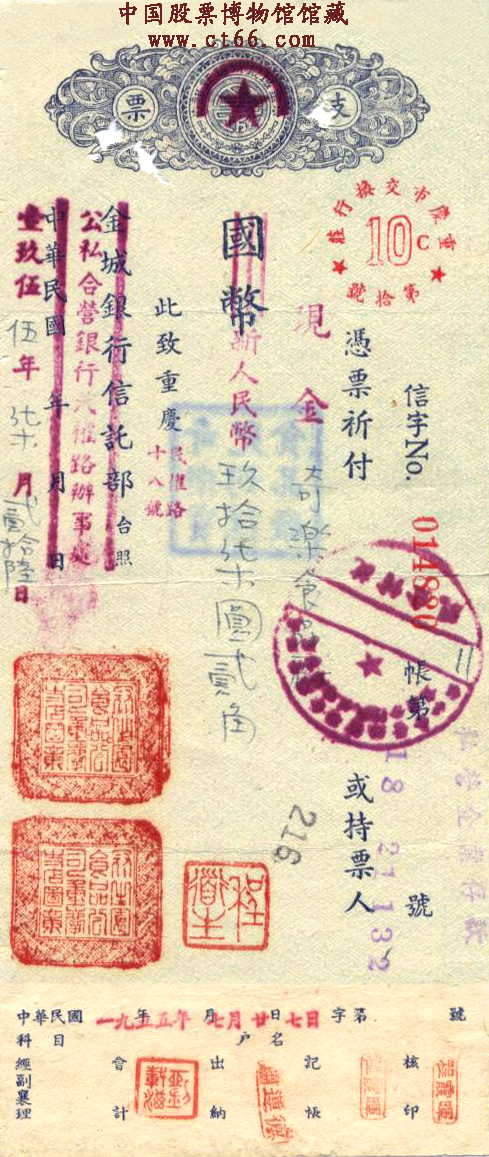 中国股票博物馆馆藏
www.ct66.com
支票
重慶市交換行莊
10C
第拾號
信字No. 014830 帳第 號
憑票祈付 奇樂食品 或持票人
現金
國幣
新人民幣 玖拾柒圓貳角
此致重慶
民權路
十八號
金城銀行信託部 台照
公私合營銀行民權路辦事處
中華民國 年 月 日
壹玖伍伍年柒月貳拾陸日
216
18 21132
中華民國 年 月 日 字第 號
一九五五年七月廿七日
科目 戶名
經副襄理 會計 出納 記帳 核印